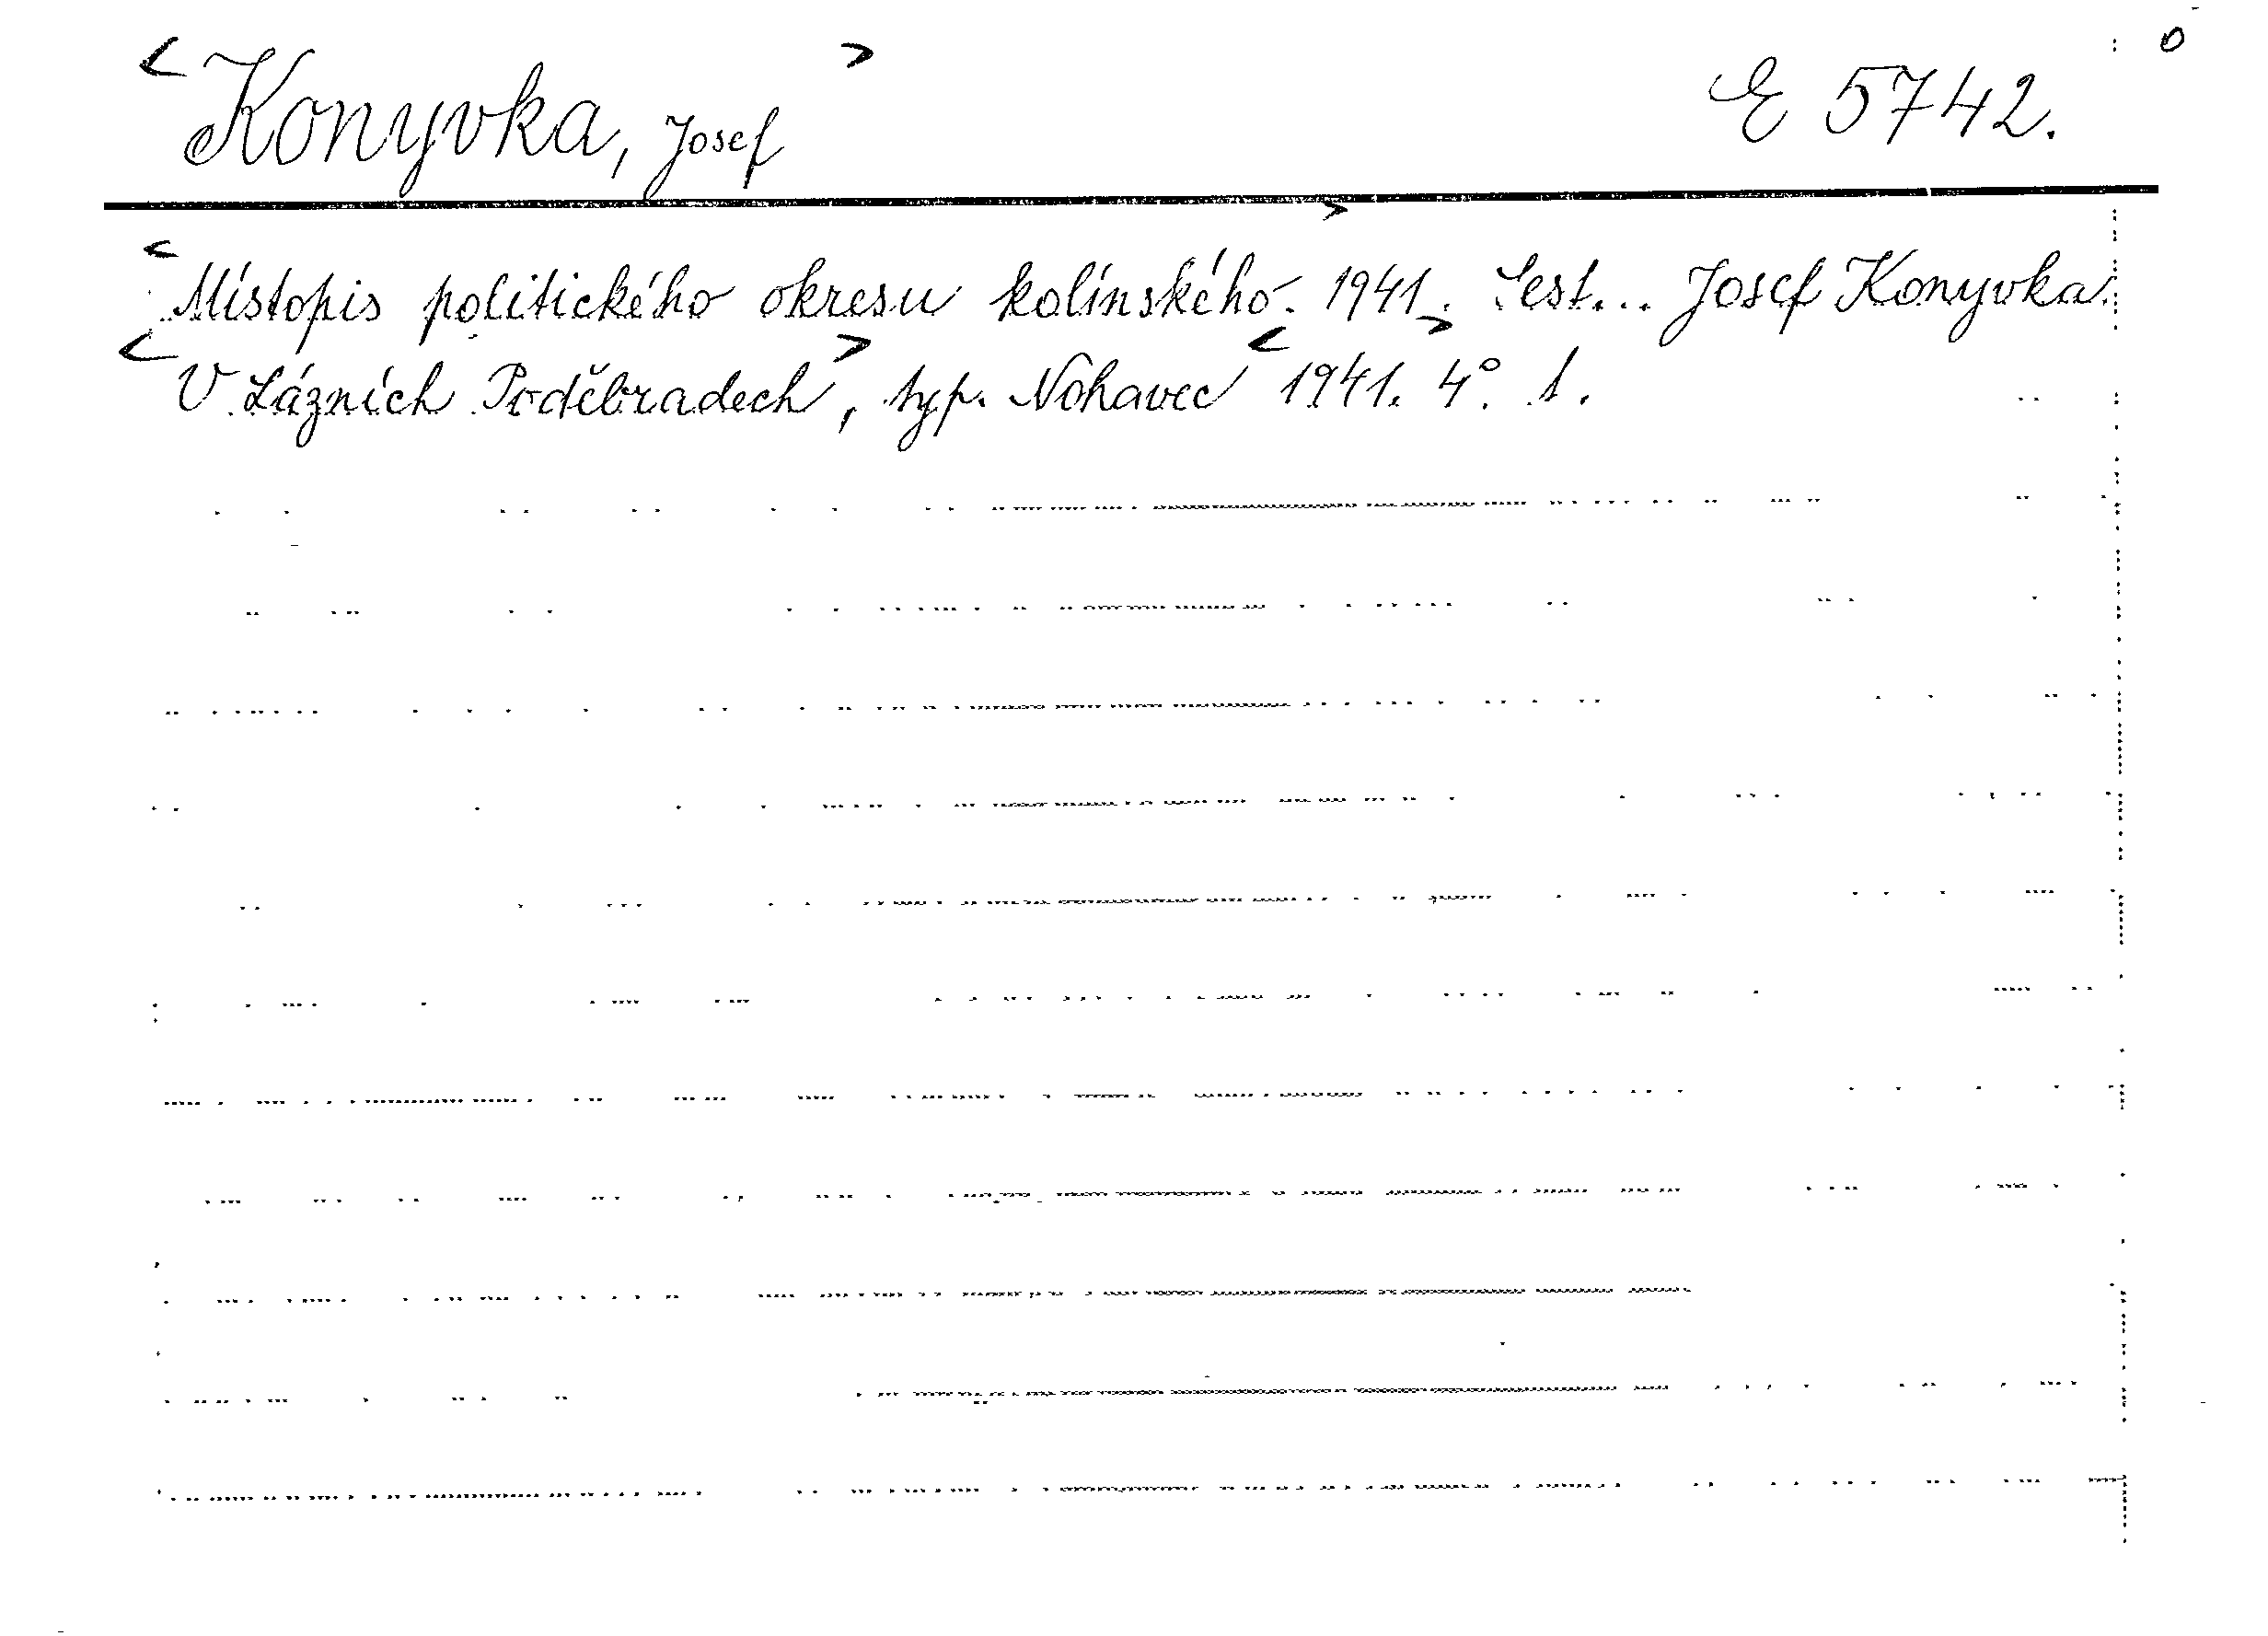 <Konyvka, Josef> E 5742. 0
<Místopis politického okresu kolínského.> 1941. Sest... Josef Konyvka.
<V Lázních Poděbradech>, typ. Nohavec <1941.> 4°. 1.